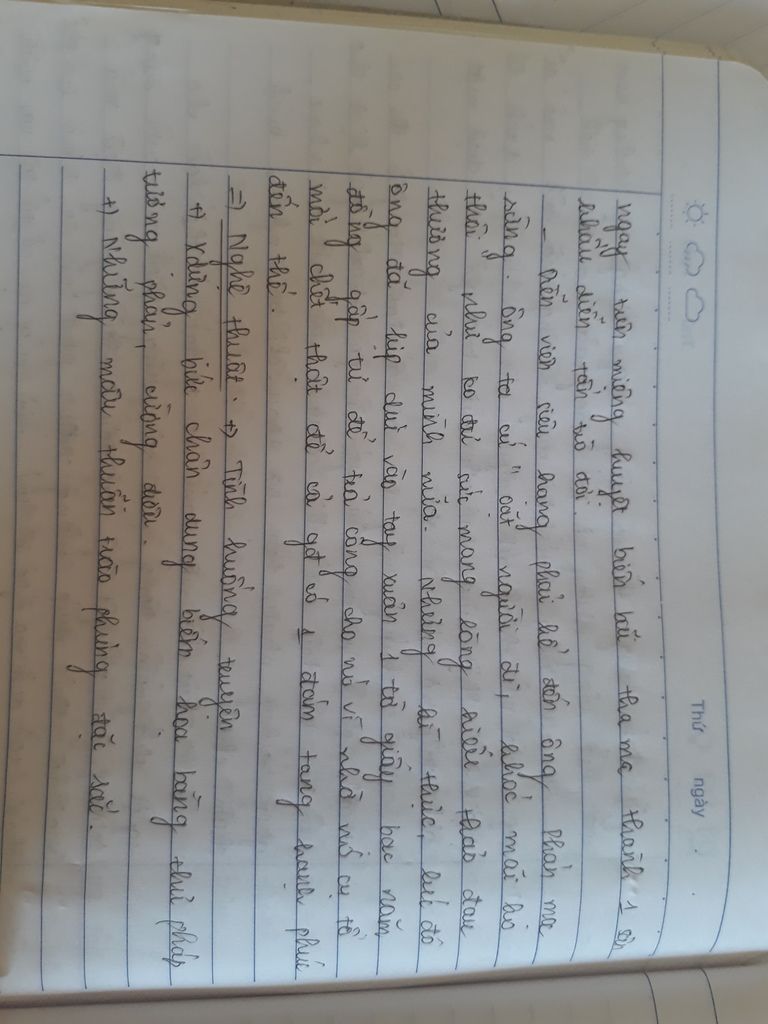 Thứ ngày
ngay trên miệng huyệt biến bãi tha ma thành 1 sân
khấu diễn tấn trò đời.
- Diễn viên siêu hạng phải kể đến ông Phán mọc
sừng. Ông ta cứ "oặt người đi, khóc mãi ko
thôi" như ko đủ sức mang lòng hiếu thảo đau
thương của mình nữa. Nhưng kì thực, lúc đó
ông đã kịp dúi vào tay Xuân 1 tờ giấy bạc năm
đồng gấp tư để trả công cho nó vì nhờ nó cụ tổ
mới chết thật để cả gđ có 1 đám tang hạnh phúc
đến thế.
=> Nghệ thuật. +) Tình huống truyện
+) Xdựng bức chân dung biếm họa bằng thủ pháp
tương phản, cường điệu.
+) Những mâu thuẫn trào phúng đặc sắc.